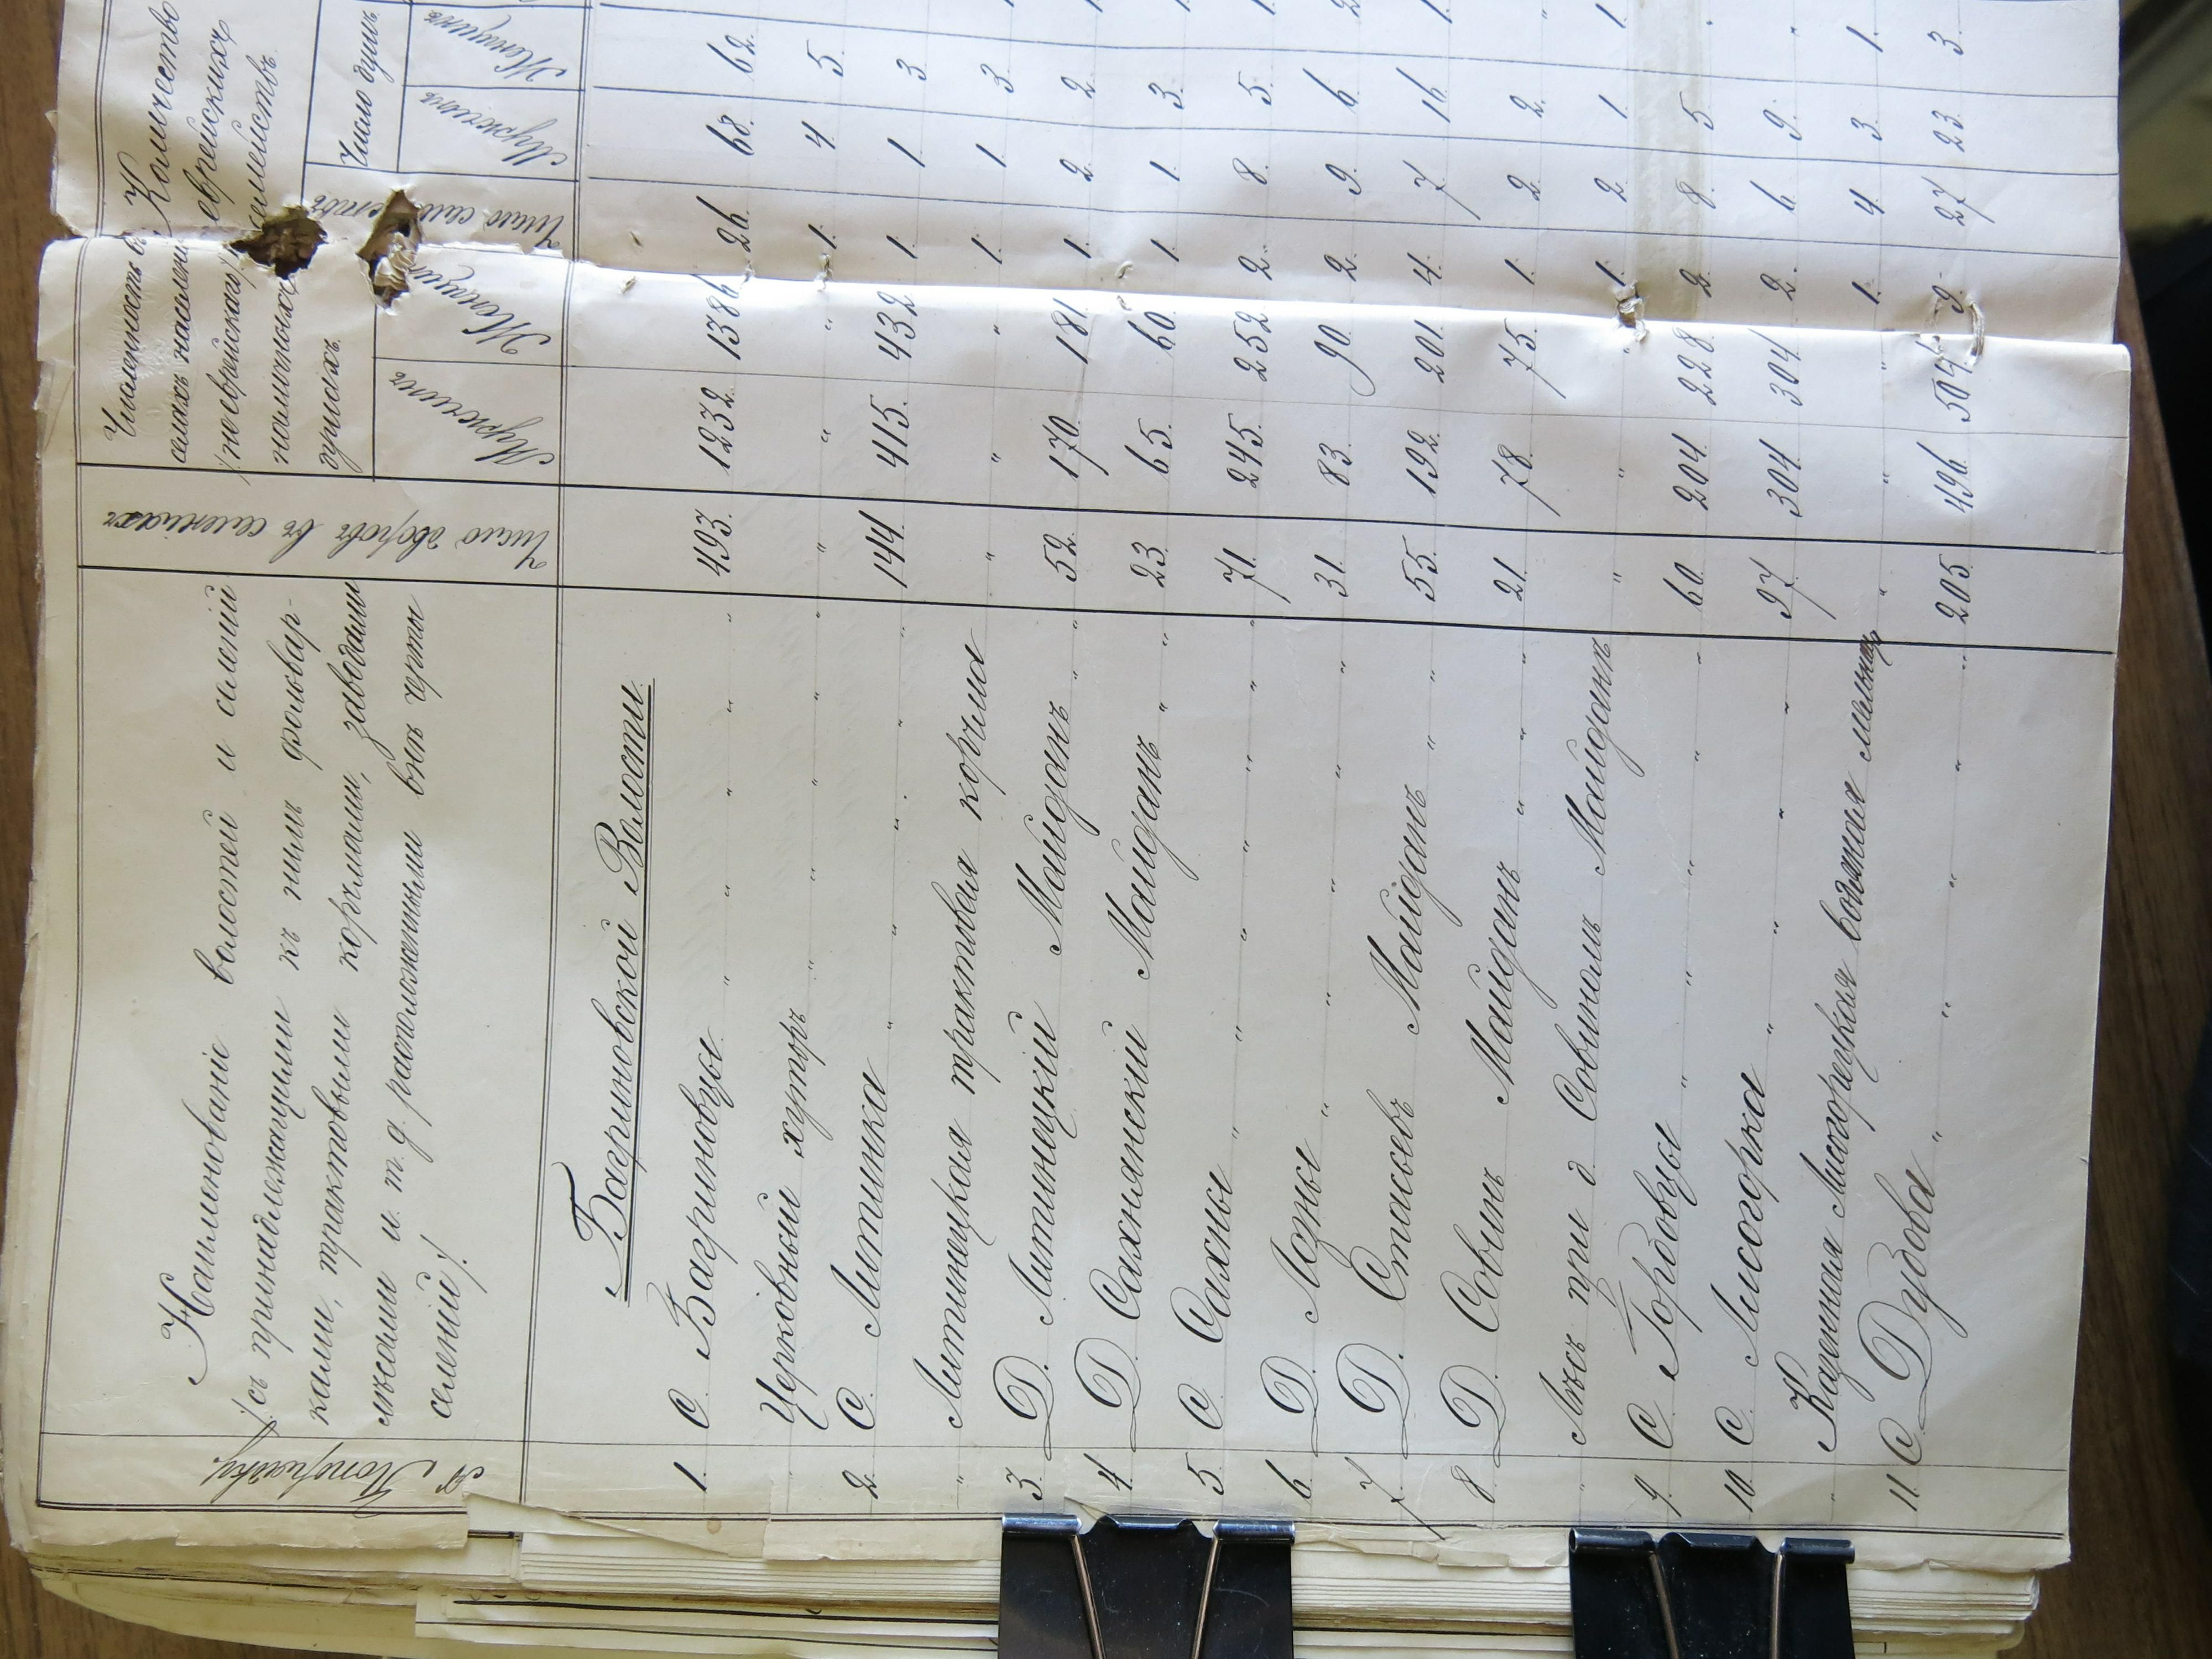 № Попорядку.
Наименованіе волостей и селеній
/съ принадлежащими къ нимъ фольвар-
ками, трактовыми корчмами, заводами
лѣсами и т. д. расположенными внѣ черты
селеній/.
Число дворовъ въ селеніяхъ
Численность въ
селахъ населенія
/не еврейскаго/
наличныхъ
душахъ.
Мужчинъ
Женщинъ
Количество
еврейскихъ
семействъ.
Число семействъ
Число душъ
Мужчинъ
Женщинъ
Багриновской Волости.
1. С. Багриновцы " " " " " 493. 1232. 1386. 26. 68. 62.
Церковный хуторъ " " " " " " " " 1. 4. 5.
2. С. Литинка " " " " " 144. 415. 432. 1. 1. 3.
" Литинецкая трактовая корчма " " " 1. 1. 3.
3. Д. Литинецкій Майданъ " 52. 170. 181. 1. 2. 2.
4. Д. Сахнянскій Майданъ " " 23. 65. 60. 1. 1. 3.
5. С. Сахны " " " " " " 71. 245. 252. 2. 8. 5.
6. Д. Лозны " " " " " 31. 83. 90. 2. 9. 6.
7. Д. Стасьевъ Майданъ " " 55. 192. 201. 4. 7. 16.
8. Д. Совинъ Майданъ " " " 21. 78. 75. 1. 2. 2.
" Лѣсъ при д Совиномъ Майданѣ " " " 1. 2. 1. 1.
9. С. Гордовцы " " " " 60. 204. 228. 2. 8. 5.
10. С. Лисогорка " " " " 97. 304. 304. 2. 6. 9.
" Казенная Лисогорецкая водяная мельница " " " 1. 4. 3. 1.
11. С. Дубова " " " " " 205. 496. 504. 9. 27. 23. 3.